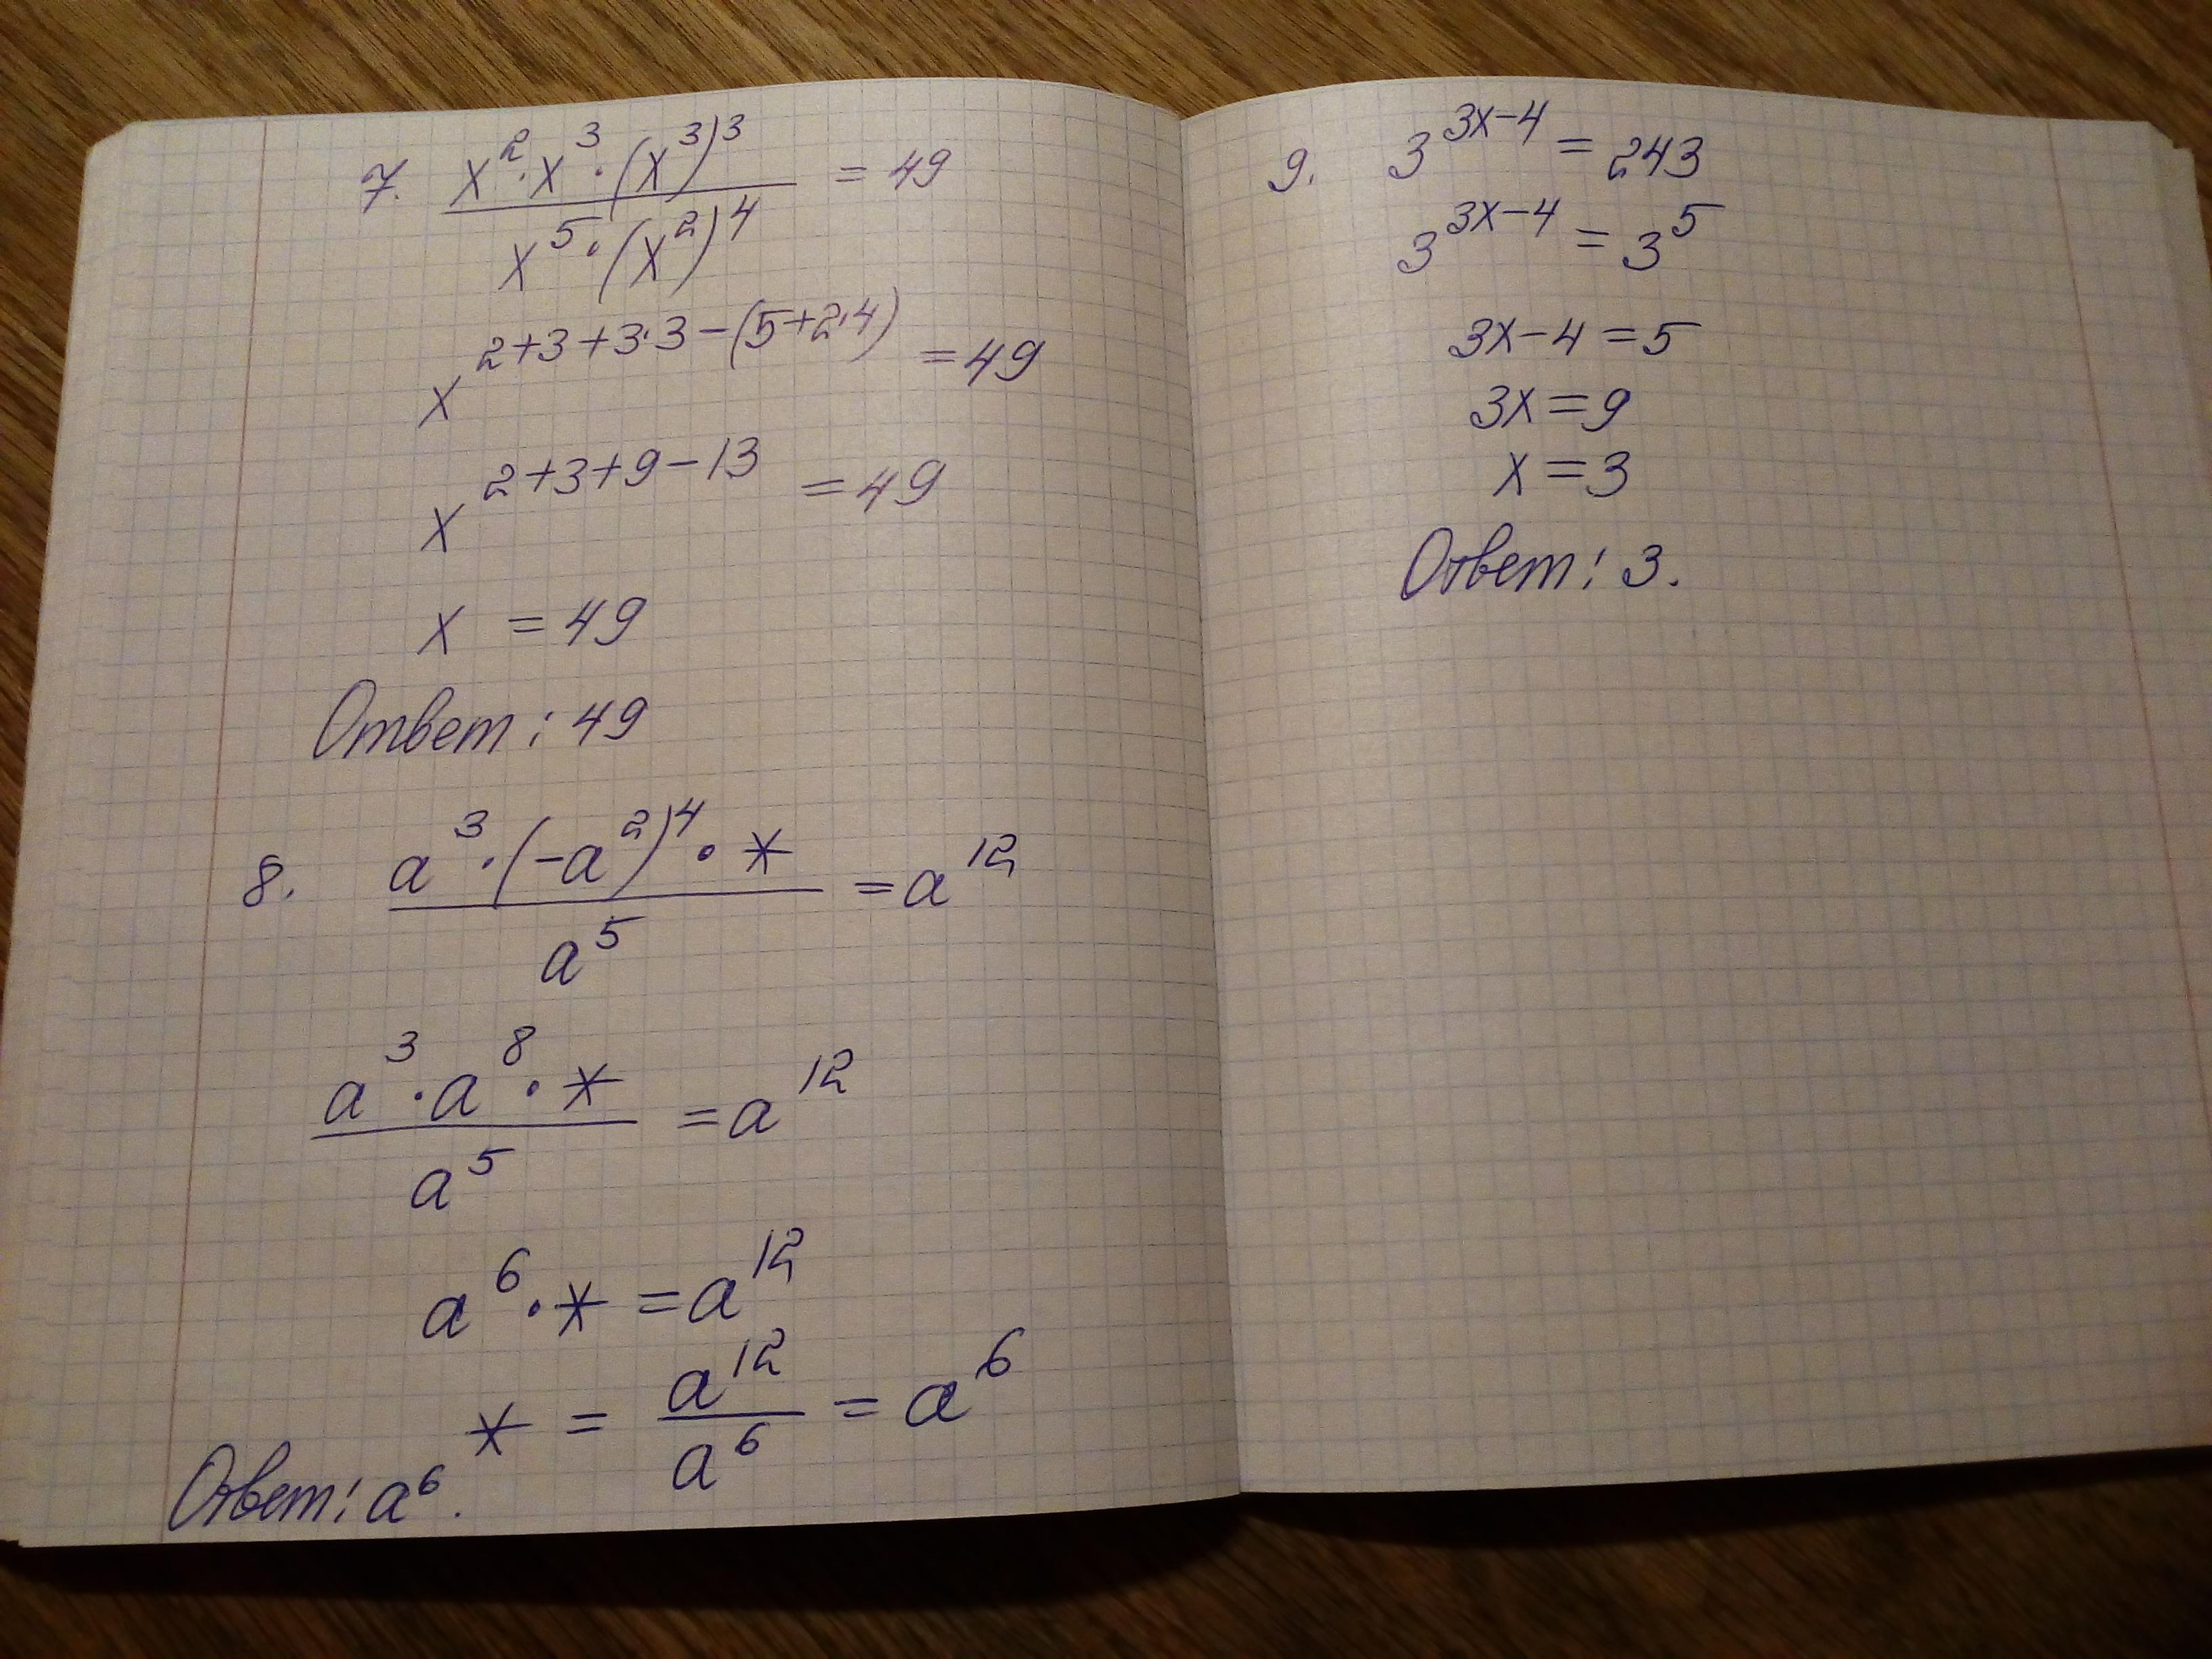 7. (x²·x³·(x³)³)/(x⁵·(x²)⁴) = 49
x^(2+3+3·3−(5+2·4)) = 49
x^(2+3+9−13) = 49
x = 49
Ответ: 49
8. (a³·(−a²)⁴·*)/a⁵ = a¹²
(a³·a⁸·*)/a⁵ = a¹²
a⁶·* = a¹²
* = a¹²/a⁶ = a⁶
Ответ: a⁶.
9. 3^(3x−4) = 243
3^(3x−4) = 3⁵
3x−4 = 5
3x = 9
x = 3
Ответ: 3.